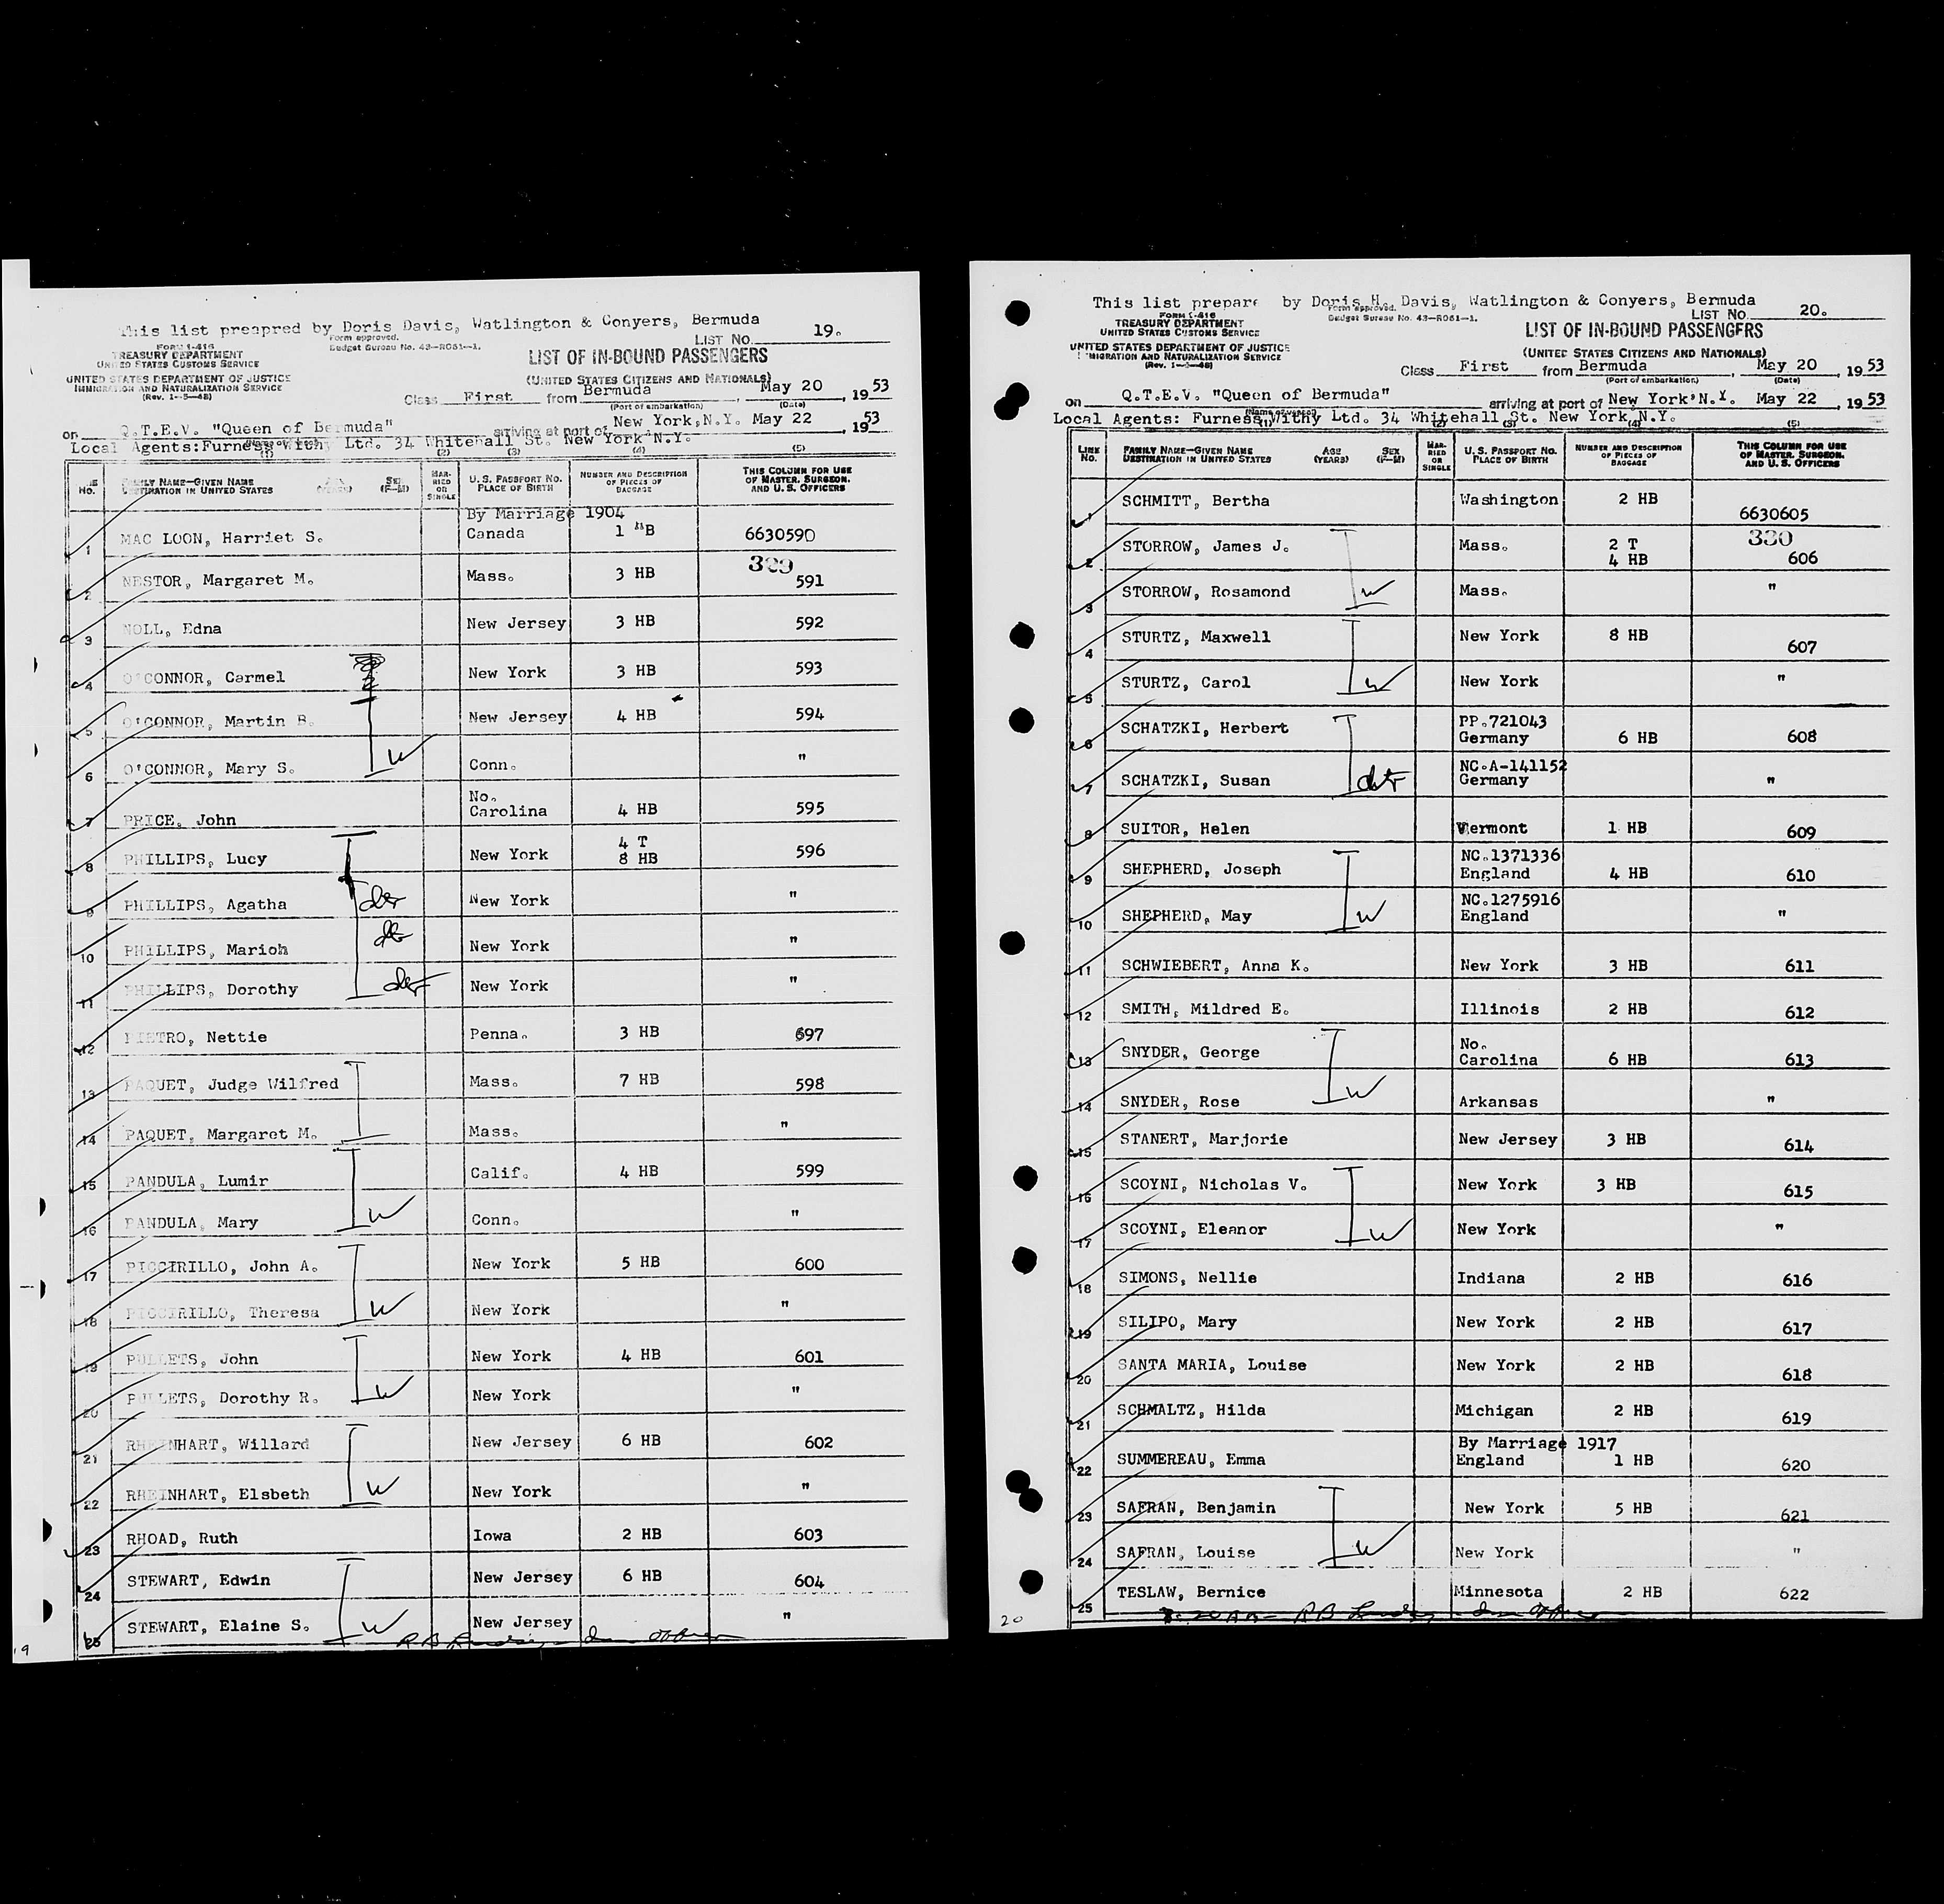 This list preapred by Doris Davis, Watlington & Conyers, Bermuda
19.
FORM I-416
Form approved.
Budget Bureau No. 43-R061-1.
LIST NO.
TREASURY DEPARTMENT
UNITED STATES CUSTOMS SERVICE
LIST OF IN-BOUND PASSENGERS
UNITED STATES DEPARTMENT OF JUSTICE
IMMIGRATION AND NATURALIZATION SERVICE
(Rev. 1-5-48)
(UNITED STATES CITIZENS AND NATIONALS)
Class First from Bermuda, May 20, 1953
(Port of embarkation) (Date)
on Q.T.E.V. "Queen of Bermuda" arriving at port of New York, N.Y. May 22, 1953
Local Agents: Furness Withy Ltd. 34 Whitehall St. New York N.Y.
(1) (2) (3) (4) (5)
LINE No. FAMILY NAME—GIVEN NAME DESTINATION IN UNITED STATES AGE (YEARS) SEX (F-M) MARRIED OR SINGLE U. S. PASSPORT NO. PLACE OF BIRTH NUMBER AND DESCRIPTION OF PIECES OF BAGGAGE THIS COLUMN FOR USE OF MASTER, SURGEON, AND U. S. OFFICERS
By Marriage 1904
1 MAC LOON, Harriet S. Canada 1 HB 6630590
329
2 NESTOR, Margaret M. Mass. 3 HB 591
3 NOLL, Edna New Jersey 3 HB 592
4 O'CONNOR, Carmel New York 3 HB 593
5 O'CONNOR, Martin B. New Jersey 4 HB 594
6 O'CONNOR, Mary S. W Conn. "
7 PRICE, John No. Carolina 4 HB 595
8 PHILLIPS, Lucy New York 4 T 8 HB 596
9 PHILLIPS, Agatha dtr New York "
10 PHILLIPS, Marion dtr New York "
11 PHILLIPS, Dorothy dtr New York "
12 PIETRO, Nettie Penna. 3 HB 697
13 PAQUET, Judge Wilfred Mass. 7 HB 598
14 PAQUET, Margaret M. Mass. "
15 PANDULA, Lumir Calif. 4 HB 599
16 PANDULA, Mary W Conn. "
17 PICCIRILLO, John A. New York 5 HB 600
18 PICCIRILLO, Theresa W New York "
19 PULLETS, John New York 4 HB 601
20 PULLETS, Dorothy R. W New York "
21 RHEINHART, Willard New Jersey 6 HB 602
22 RHEINHART, Elsbeth W New York "
23 RHOAD, Ruth Iowa 2 HB 603
24 STEWART, Edwin New Jersey 6 HB 604
25 STEWART, Elaine S. W New Jersey "
19
This list prepare by Doris H. Davis, Watlington & Conyers, Bermuda
20.
FORM I-416
Form approved.
Budget Bureau No. 43-R061-1.
LIST NO.
TREASURY DEPARTMENT
UNITED STATES CUSTOMS SERVICE
LIST OF IN-BOUND PASSENGERS
UNITED STATES DEPARTMENT OF JUSTICE
IMMIGRATION AND NATURALIZATION SERVICE
(Rev. 1-5-48)
(UNITED STATES CITIZENS AND NATIONALS)
Class First from Bermuda, May 20, 1953
(Port of embarkation) (Date)
on Q.T.E.V. "Queen of Bermuda" arriving at port of New York, N.Y. May 22, 1953
(Name of vessel)
Local Agents: Furness Withy Ltd. 34 Whitehall St. New York N.Y.
(1) (2) (3) (4) (5)
LINE No. FAMILY NAME—GIVEN NAME DESTINATION IN UNITED STATES AGE (YEARS) SEX (F-M) MARRIED OR SINGLE U. S. PASSPORT NO. PLACE OF BIRTH NUMBER AND DESCRIPTION OF PIECES OF BAGGAGE THIS COLUMN FOR USE OF MASTER, SURGEON, AND U. S. OFFICERS
1 SCHMITT, Bertha Washington 2 HB 6630605
330
2 STORROW, James J. Mass. 2 T 4 HB 606
3 STORROW, Rosamond W Mass. "
4 STURTZ, Maxwell New York 8 HB 607
5 STURTZ, Carol W New York "
6 SCHATZKI, Herbert PP.721043 Germany 6 HB 608
7 SCHATZKI, Susan dtr NC.A-141152 Germany "
8 SUITOR, Helen Vermont 1 HB 609
9 SHEPHERD, Joseph NC.1371336 England 4 HB 610
10 SHEPHERD, May W NC.1275916 England "
11 SCHWIEBERT, Anna K. New York 3 HB 611
12 SMITH, Mildred E. Illinois 2 HB 612
13 SNYDER, George No. Carolina 6 HB 613
14 SNYDER, Rose W Arkansas "
15 STANERT, Marjorie New Jersey 3 HB 614
16 SCOYNI, Nicholas V. New York 3 HB 615
17 SCOYNI, Eleanor W New York "
18 SIMONS, Nellie Indiana 2 HB 616
19 SILIPO, Mary New York 2 HB 617
20 SANTA MARIA, Louise New York 2 HB 618
21 SCHMALTZ, Hilda Michigan 2 HB 619
By Marriage 1917
22 SUMMEREAU, Emma England 1 HB 620
23 SAFRAN, Benjamin New York 5 HB 621
24 SAFRAN, Louise W New York "
25 TESLAW, Bernice Minnesota 2 HB 622
20